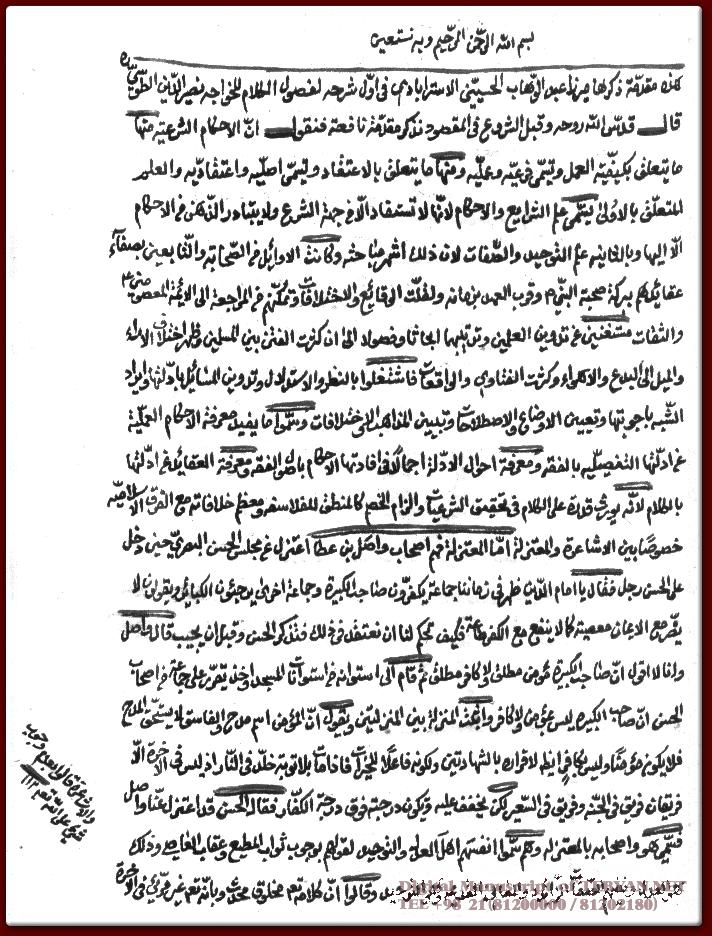 بسم الله الرحمن الرحيم وبه نستعين
هذه مقدمة ذكرها ميرزا عبد الوهاب الحسيني الاسترابادي في اول شرحه لفصول الكلام للخواجه نصير الدين الطوسي
قال قدس الله روحه وقبل الشروع في المقصود نذكر مقدمة نافعة فنقول ان الاحكام الشرعية منها
ما يتعلق بكيفية العمل وتسمى فرعية وعملية ومنها ما يتعلق بالاعتقاد وتسمى اصلية واعتقادية والعلم
المتعلق بالاولى يسمى علم الشرايع والاحكام لانها لا تستفاد الا من جهة الشرع ولا يتبادر الذهن من الاحكام
الا اليها وبالثانية علم التوحيد والصفات لان ذلك اشهر مباحثه وكانت الاوايل من الصحابة والتابعين بصفاء
عقايدهم ببركة صحبة النبي ص وقرب العهد بزمانه ولقلة الوقايع والاختلافات وتمكنهم من المراجعة الى الائمة المعصومين ع
والثقات مستغنين عن تدوين العلمين وترتيبهما ابحاثا وفصولا الى ان كثرت الفتن بين المسلمين وظهر اختلاف الاراء
والميل الى البدع والاهواء وكثرت الفتاوى والواقعات فاشتغلوا بالنظر والاستدلال وتدوين المسائل بادلتها وايراد
الشبه باجوبتها وتعيين الاوضاع والاصطلاحات وتبيين المذاهب والاختلافات وسموا ما يفيد معرفة الاحكام العملية
عن ادلتها التفصيلية بالفقه ومعرفة احوال الادلة اجمالا في افادتها الاحكام باصول الفقه ومعرفة العقايد عن ادلتها
بالكلام لانه يورث قدرة على الكلام في تحقيق الشرعيات والزام الخصم كالمنطق للفلاسفه ومعظم خلافاته مع الفرق الاسلامية
خصوصا بين الاشاعرة والمعتزلة اما المعتزلة فهم اصحاب واصل بن عطا اعتزل عن مجلس الحسن البصري حين دخل
على الحسن رجل فقال يا امام الدين ظهر في زماننا جماعة يكفرون صاحب الكبيرة وجماعة اخرى يرجئون الكبائر ويقولون لا
يضر مع الايمان معصية كما لا ينفع مع الكفر طاعة فكيف تحكم لنا ان نعتقد في ذلك فتفكر الحسن وقبل ان يجيب قال واصل
وانا لا اقول ان صاحب الكبيرة مؤمن مطلق ولا كافر مطلق ثم قام الى اسطوانة من اسطوانات المسجد واخذ يقرر على جماعة من اصحاب
الحسن ان صاحب الكبيرة ليس بمؤمن ولا كافر واثبت المنزلة بين المنزلتين ويقول ان المؤمن اسم مدح والفاسق لا يستحق المدح
فلا يكون مؤمنا وليس بكافر ايضا لاقراره بالشهادتين ولكونه فاعلا للخيرات فاذا مات بلا توبة خلد في النار اذ ليس في الاخرة الا
فريقان فريق في الجنة وفريق في السعير لكن يخفف عليه ويكون درجته فوق درجة الكفار فقال الحسن قد اعتزل عنا واصل
فسمي هو واصحابه بالمعتزلة وهم سموا انفسهم اهل العدل والتوحيد لقولهم بوجوب ثواب المطيع وعقاب العاصي وذلك
وقالوا ان كلامه تع مخلوق محدث وبانه تع غير مرئي في الاخرة
Digital Manuscript of
TEL +98 21(81200000 / 81202180)